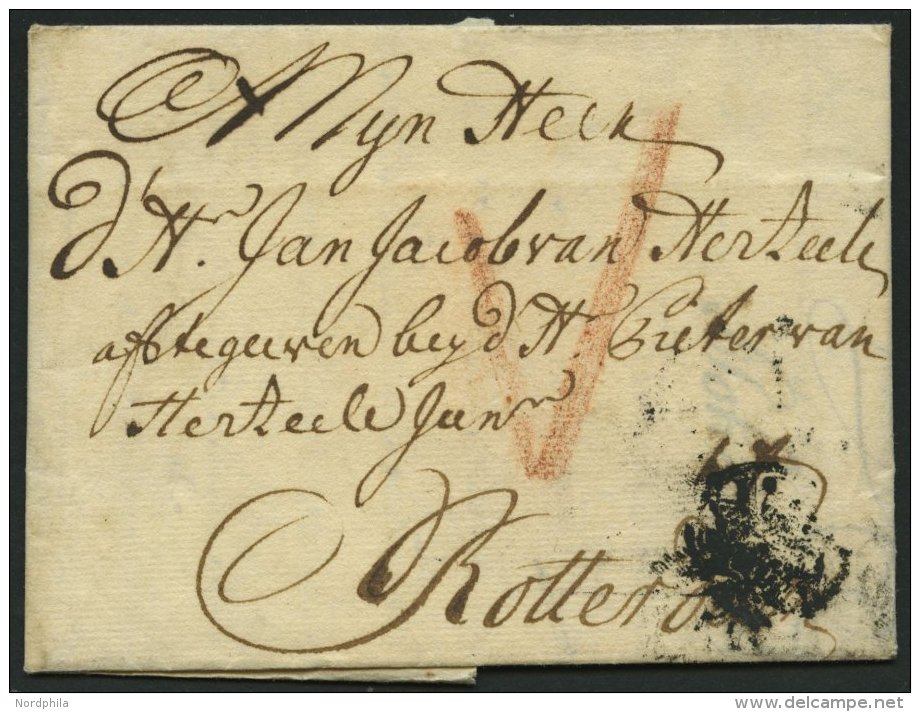 A Myn Heer
d'Hr. Jan Jacob van Herzeele
afftegeeven bey d Hr. Pieter van
Herzeele Junr
V
Rotterdam
Nordphila
www.delcampe.net